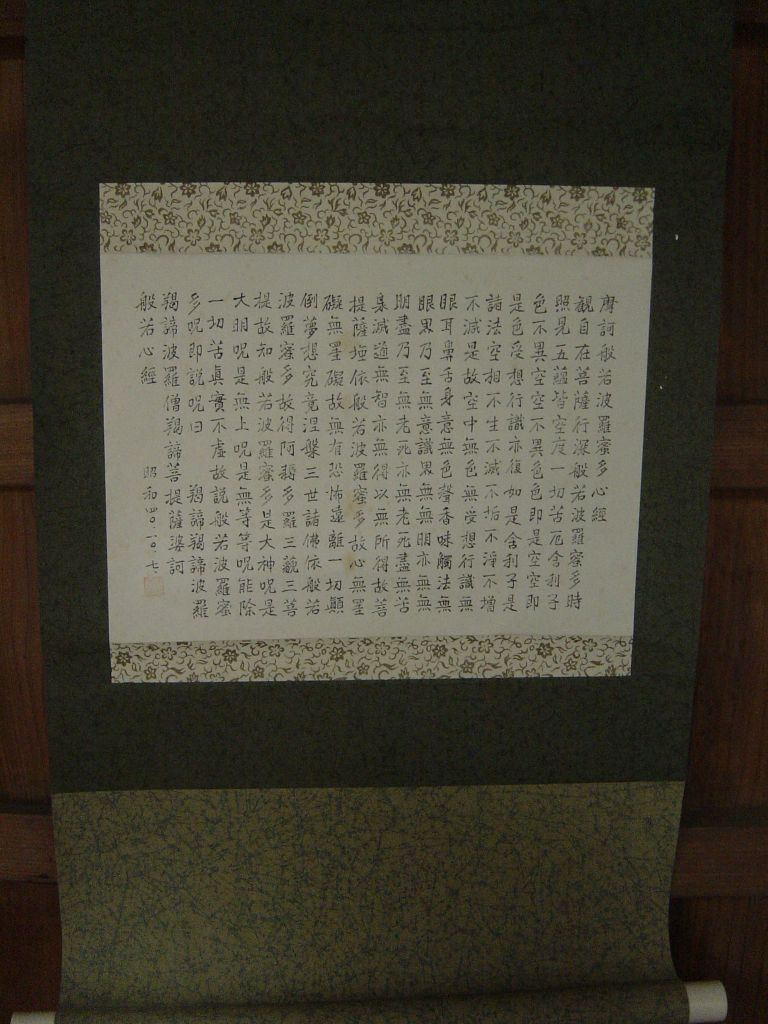 摩訶般若波羅蜜多心經
観自在菩薩行深般若波羅蜜多時
照見五蘊皆空度一切苦厄舎利子
色不異空空不異色色即是空空即
是色受想行識亦復如是舎利子是
諸法空相不生不滅不垢不淨不增
不減是故空中無色無受想行識無
眼耳鼻舌身意無色聲香味觸法無
眼界乃至無意識界無無明亦無無
明盡乃至無老死亦無老死盡無苦
集滅道無智亦無得以無所得故菩
提薩埵依般若波羅蜜多故心無罣
礙無罣礙故無有恐怖遠離一切顛
倒夢想究竟涅槃三世諸佛依般若
波羅蜜多故得阿耨多羅三藐三菩
提故知般若波羅蜜多是大神呪是
大明呪是無上呪是無等等呪能除
一切苦眞實不虚故説般若波羅蜜
多呪即説呪曰　羯諦羯諦波羅
羯諦波羅僧羯諦菩提薩婆訶
般若心經　昭和四〇、一〇、七